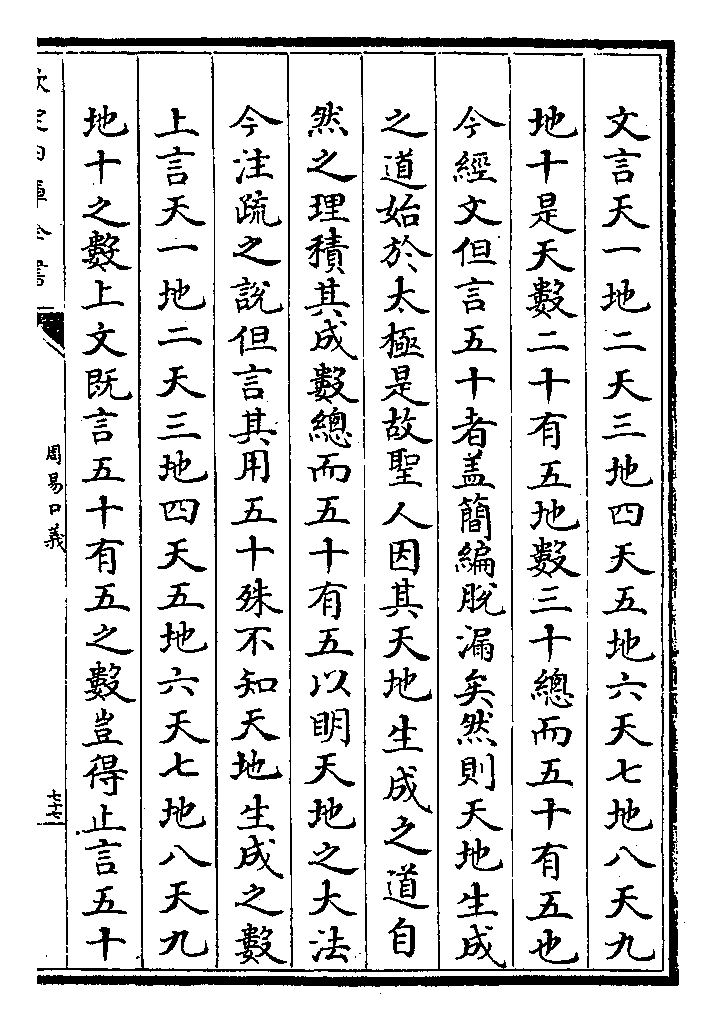 文言天一地二天三地四天五地六天七地八天九
地十是天數二十有五地數三十總而五十有五也
今經文但言五十者盖簡編脫漏矣然則天地生成
之道始於太極是故聖人因其天地生成之道自
然之理積其成數總而五十有五以明天地之大法
今注疏之說但言其用五十殊不知天地生成之數
上言天一地二天三地四天五地六天七地八天九
地十之數上文既言五十有五之數豈得止言五十
欽定四庫全書
周易口義
七十七